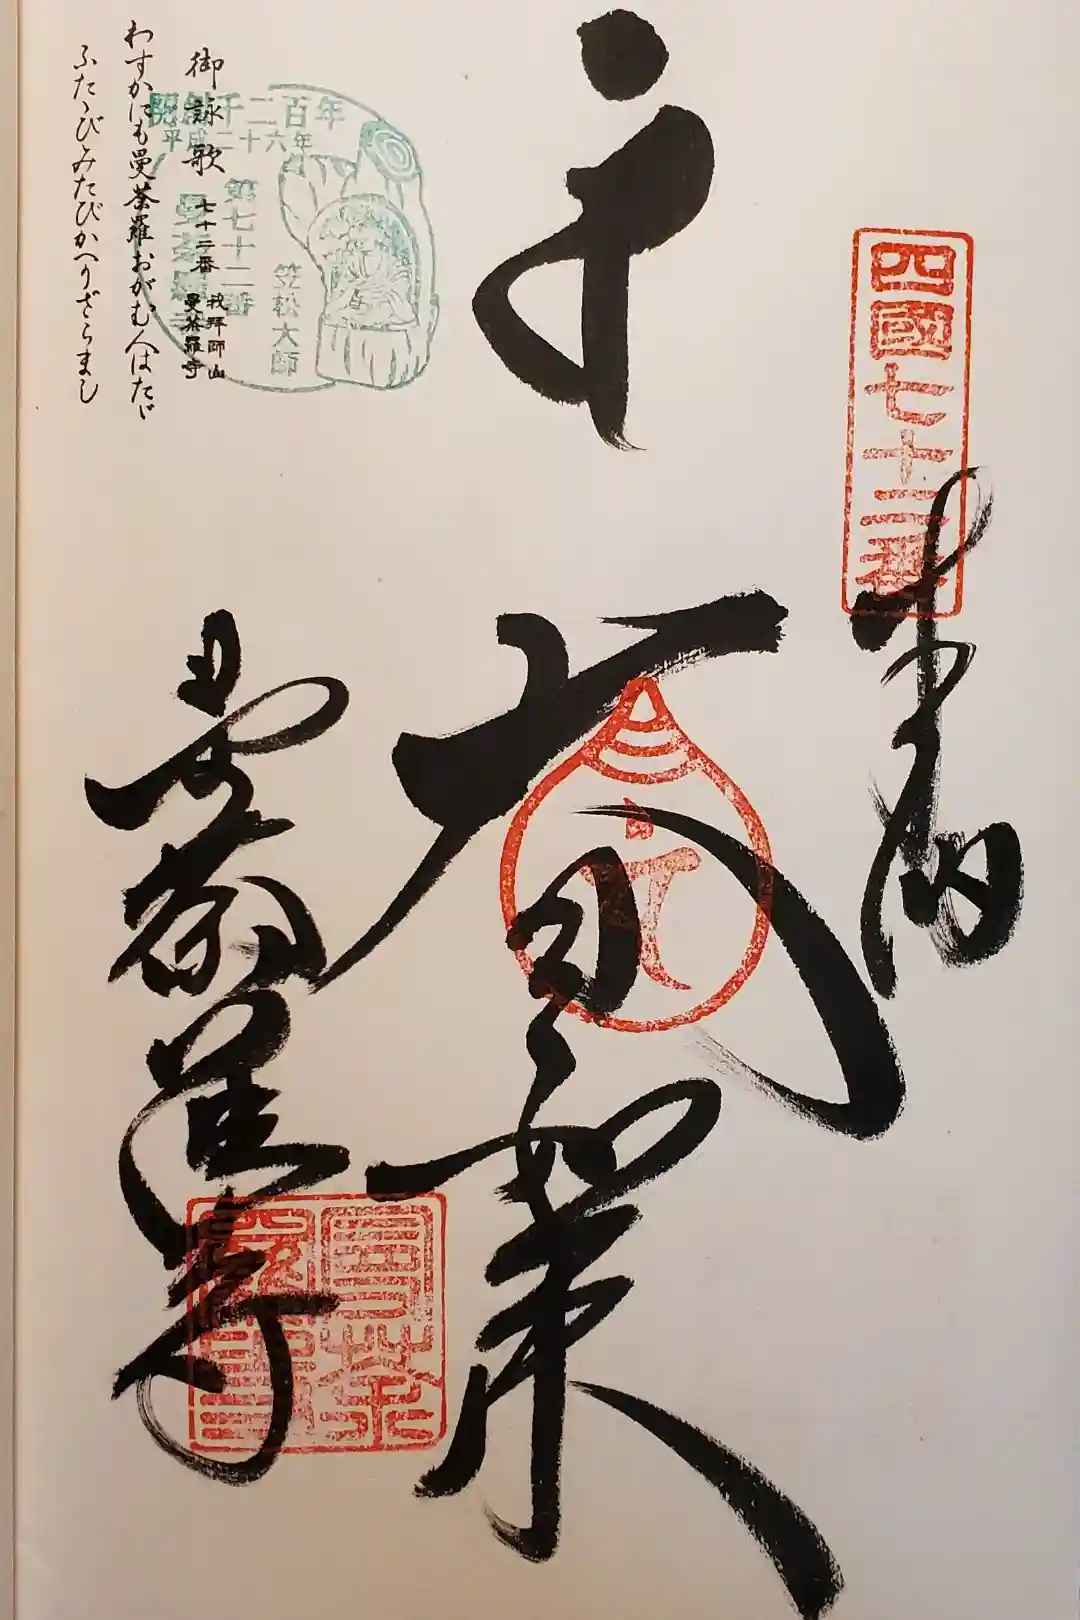 四國七十二番
奉納
大日如来
曼荼羅寺
曼荼羅寺
開創千二百年
平成二十六年
第七十二番
曼荼羅寺
笠松大師
御詠歌
七十二番 我拝師山
曼荼羅寺
わずかにも曼荼羅おがむ人はたゞ
ふたゝびみたびかへりざらまし